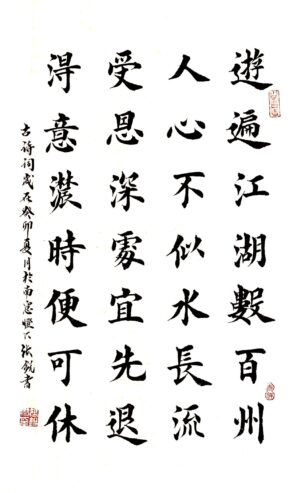 遊遍江湖數百州
人心不似水長流
受恩深處宜先退
得意濃時便可休
古詩詞歲在癸卯夏月於南窗燈下張銳書